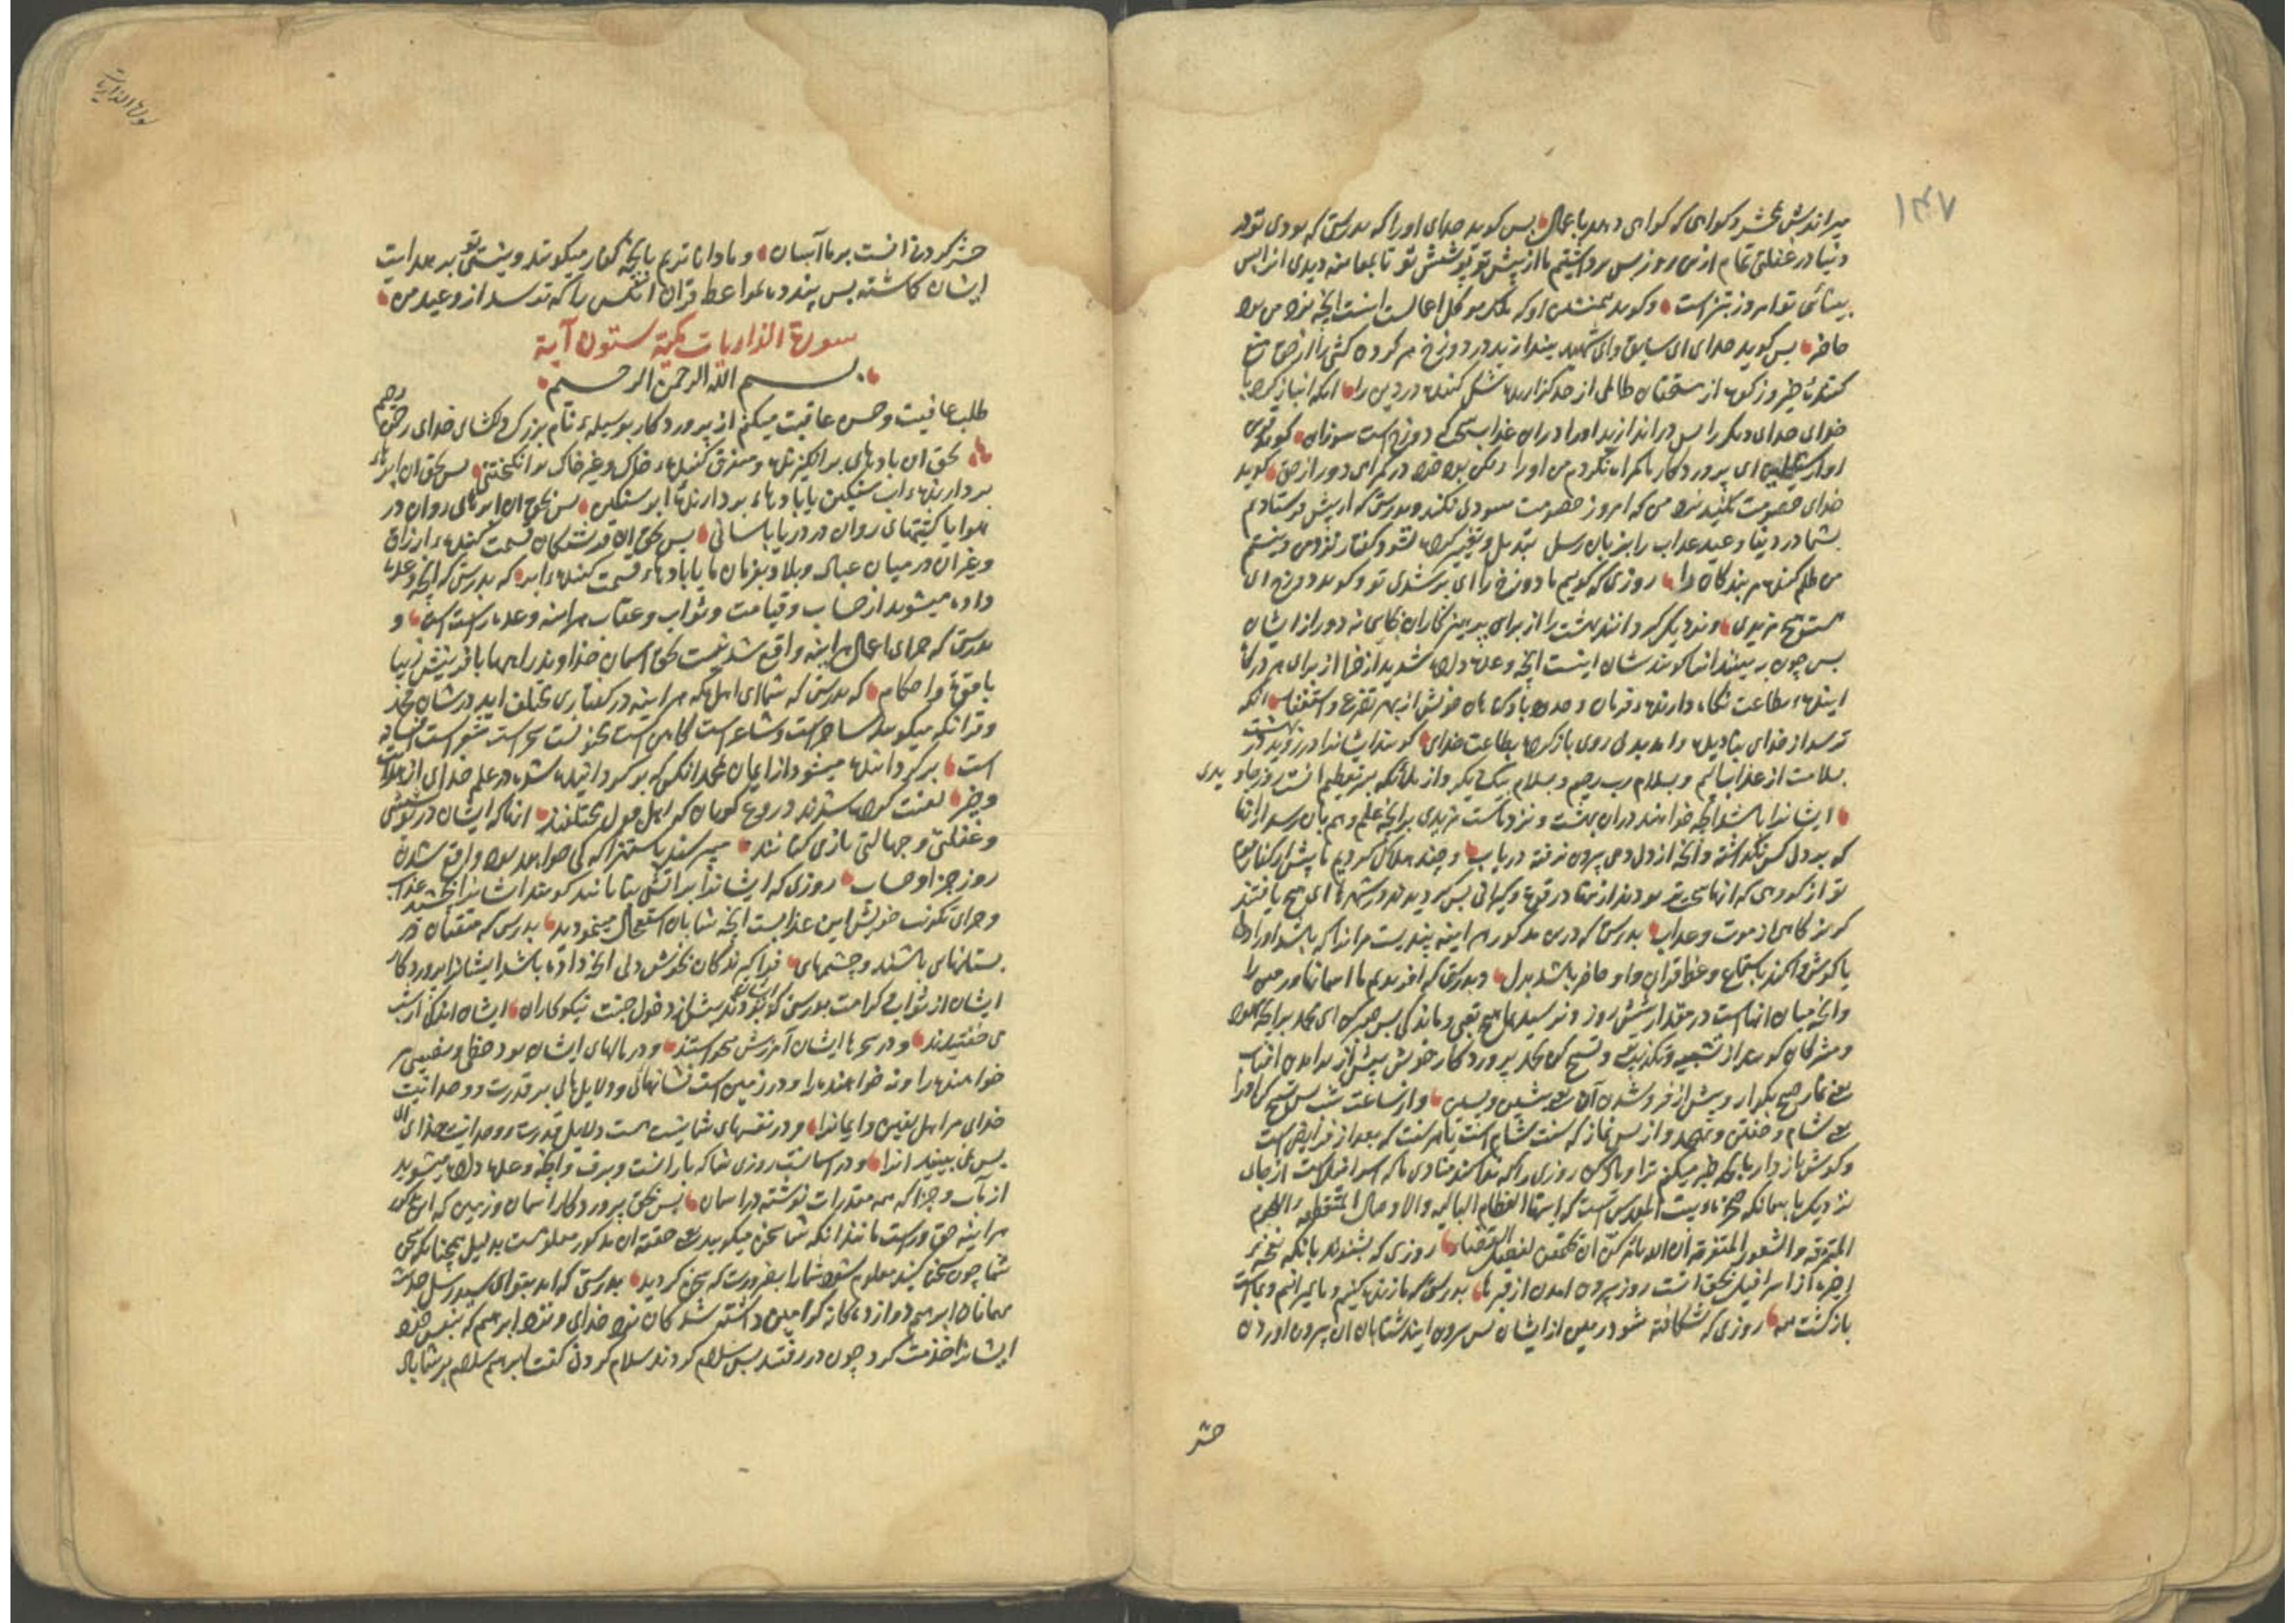 ۱۴۷
میراندش بمحشر و کواهی که کواهی دهد باعمال پس کوید خدای اورا که بدرستی که بودی تو در
دنیا در غفلتی تمام ازین روز پس برداشتیم ما از پیش تو پوشش تو تا بمعاینه دیدی از پس
بینائی تو امروز تیزاست و کوید همنشین او که ملک موکل اعمالست اینست آنچه نزد من بود
حاضر پس کوید خدای ای سایق و ای شهید بیندازید در دوزخ هر کرونده کشی را از حق منع
کننده خیر و زکوة از مستحقان ظالمی از حد کزارنده شک کننده در دین را آنکه انباز کرد با
خدای خدای دیگر را پس دراندازید اورا دران عذاب سختی که دوزخ است سوزان کوید قرین
او از شیاطین ای پروردکار ما کمراه نکردم من اورا ولکن بود خود در کمراهی دور از حق کوید
خدای خصومت مکنید نزد من که امروز خصومت سودی نکند و بدرستی که از پیش فرستادم
بشما در دنیا وعید عذاب را بزبان رسل تبدیل و تغییر کرده نشود گفتار نزد من و نیستم
من ظلم کننده مر بندکان را روزی که کوییم ما دوزخ را ای پر شدی تو و کوید دوزخ ای
هست هیچ مزیدی و نزدیک کردانند بهشت را از برای پرهیزکاران بجایی نه دور از ایشان
پس چون ببینند انرا کویند شان اینست آنچه وعده داده شدید از خدا از برای هر درگاه
آینده بطاعت نگاه دارنده فرمان و حدود با و کناهان خویش از بهر تضرع و استغفار آنکه
ترسد از خدای بنادیده و آمد بدلی روی بازکرده بطاعت خدای کویند ایشانرا درروید در بهشت
بسلامت از عذاب الیم و بسلام رب رحیم و بسلام یکی بیکی و از ملائکه بهر تعظیم آنست روز جاویدی
ایشانرا باشد آنچه خواهند دران بهشت و نزد ماست مزیدی برآنچه علم و هم بان رسد از آنها
که بر دل کس نگذشته و آنچه از دل و هم بیرون نرفته دریاب و چند هلاک کردیم تا پیش از کفار قوم
تو از کروهی که از انها سخت تر بودند از شما در قوة و کیرائی پس کردیدند در شهرها ای هیچ یافتند
کریزکاهی از موت و عذاب بدرستی که درین مذکور هر آینه پندیست مرانرا که باشد اورا دلی
یا کوش واکند باستماع وعظ قران و او حاضر باشد بدل و بدرستی که آفریدیم ما آسمانها و زمین را
وانچه میان انهاست در مقدار شش روز و نرسید بما هیچ تعبی و ماندکی پس صبر کن ای محمد برآنچه یهود
و مشرکان کویند از تشبیه و تکذیب و تسبیح کن بحمد پروردکار خویش پیش از برآمدن افتاب
یعنی نماز صبح بکزار و پیش از فروشدن آن یعنی پیشین و پسین و از ساعت شب پس تسبیح کن اورا
یعنی شام و خفتن و تهجد و از پس نماز که سنت شام است یا هر سنت که بعد از فرایض است
و کوش باز دار بانچه خبر میکنم ترا و یاد کن روزی را که ندا کند منادی ما که اسرافیل است از جای
نزدیک بآسمان که صخره بیت المقدس است که ایتها العظام البالیه والاوصال المتقطعه واللحوم
المتمزقه والشعور المتفرقه ان الله یامرکن ان تجتمعن لفصل القضاء روزی که بشنوند بانکه نخچیر
اخره از اسرافیل بحق انست روز بیرون آمدن از قبرها بدرستی که ما زنده میکنیم و ما میمیرانیم و بماست
بازکشت همه روزی که شکافته شود زمین از ایشان پس بیرون ایند شتابان ان بیرون آوردن
حشر
سورة الذاریات
حشر کردنی انست برما آسان و ما داناتریم بانچه کفار میکویند و نیستی تو بر هدایت
ایشان کماشته پس پند ده بمواعظ قرآن آنکس را که ترسد از وعید من
سورة الذاریات مکیة ستون آیة
بسم الله الرحمن الرحیم
طلب عافیت و حسن عاقبت میکنم از پروردکار بوسیله نام بزرک دلکشای خدای رحمن رحیم
بحق ان بادهای برانکیزنده و متفرق کننده خاک و غیر خاک برانکیختنی پس بحق ان ابرهای
بردارنده آب سنکین یا بادهای بردارنده ابر سنکین پس بحق ان ابرهای روان در
هوا یا کشتیهای روان در دریا باسانی پس بحق ان فرشتکان قسمت کننده ارزاق
و غیر ان در میان عباد و بلاد بفرمان ما یا بادهای قسمت کننده ابر که بدرستی که آنچه وعده
داده میشوید از حساب و قیامت و ثواب و عقاب هر اینه وعده راست است و
بدرستی که جزای اعمال هر اینه واقع شدنیست بحق آسمان خداوند راهها بآفرینش زیبا
با قوة و احکام که بدرستی که شما ای اهل مکه هر اینه در کفتاری مختلف اید در شان محمد
و قرآن که میکویید ساحر است و شاعر است کاهن است مجنونست سحر است شعر است افسانه
است برکردانیده میشود از ایمان بمحمد آنکس که برکردانیده شده در علم خدای از هدایت
و خیر لعنت کرده شدند دروغ کویان که اهل قول مختلفند آنها که ایشان در پوششی
و غفلتی و جهالتی بازی کنانند میپرسند باستهزا که کی خواهد بود واقع شدن
روز جزا و حساب روزی که ایشانرا بر اتش بتابانند کویند ایشانرا بچشید عذاب
و جزای تکذیب خویش این عذابیست آنچه شما بان استعجال مینمودید بدرستی که متقیان در
بستانهای باشند و چشمهای فراگیرندکان بخوش دلی آنچه داده باشد ایشانرا پروردکار
ایشان از ثواب و کرامت بدرستی که بودند پیش از دخول جنت نیکوکاران ایشان اندکی از شب
می خفتیدند و در سحرها ایشان آمرزش میخواستند و در مالهای ایشان بود حظی و نصیبی مر
خواهنده را و نه خواهنده را و در زمین است نشانهای و دلایل های بر قدرت و وحدانیت
خدای مر اهل یقین و ایمانرا و در نفسهای شما نیز هست دلایل قدرت و وحدانیت خدای ای
پس نمی بینید انرا و در آسمانست روزی شما که بارانست و برف و آنچه وعده داده میشوید
از مآب و جزا که همه مقدرات نوشته در آسمان پس بحق پروردکار آسمان و زمین که این
هر اینه حق و راست مانند آنکه شما سخن میکویید یعنی حقیقة ان مذکور معلومست بدلیل همچنانکه سخن
شما چون سخن کنید معلوم شود شمارا بضرورت که سخن کردید بدرستی که آمد بتو ای سید رسل حدیث
مهمانان ابراهیم دوازده کانه کرامی داشته شدکان نزد خدای و نزد ابراهیم که بنفس خود
ایشانرا خدمت کرد چون در رفتند پس سلام کردند سلام کردنی کفت ابراهیم سلام بر شما باد